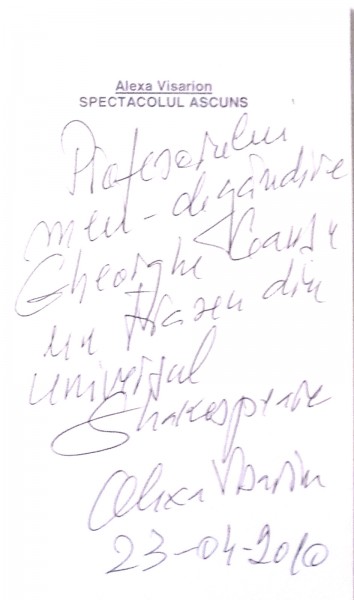 Alexa Visarion
SPECTACOLUL ASCUNS
Profesorului
meu - de gândire
Gheorghe
un din
universul
Shakespeare
Alexa Visarion
23-04-2010